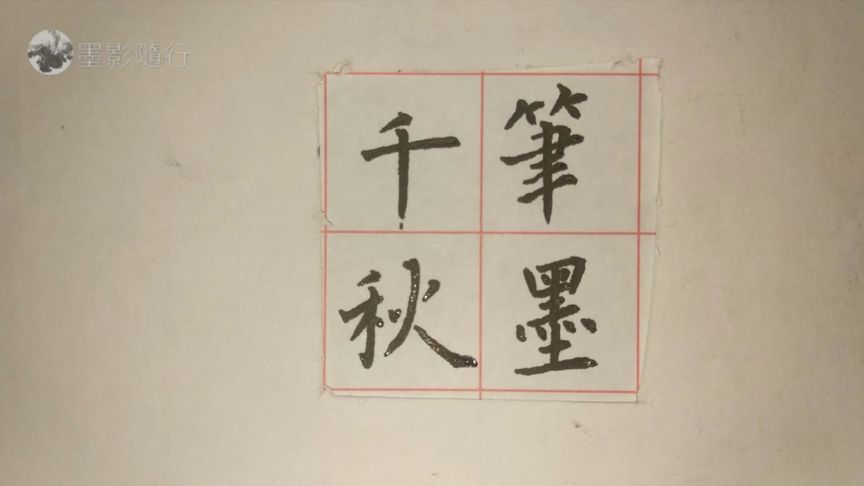 墨影隨行
筆墨
千秋